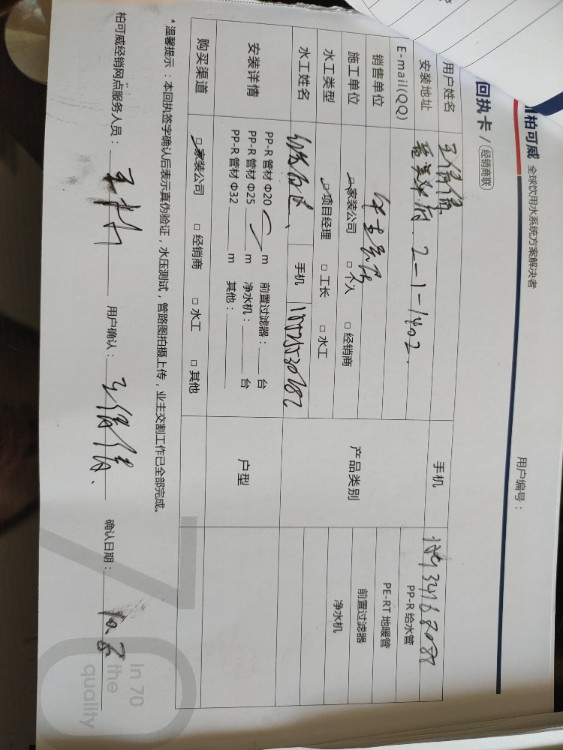 柏可威 全球饮用水系统方案解决者
回执卡 / 经销商联
用户编号：
用户姓名 王倩倩 手机
安装地址 2-1-1402.
E-mail(QQ)
销售单位 产品类别 PP-R 给水管
施工单位 家装公司 □ 个人 □ 经销商 PE-RT 地暖管
水工类型 项目经理 □ 工长 □ 水工 前置过滤器
水工姓名 手机 净水机
安装详情 PP-R 管材 Φ20 m 前置过滤器： 台 户型
PP-R 管材 Φ25 m 净水机： 台
PP-R 管材 Φ32 m 其他：
购买渠道 家装公司 □ 经销商 □ 水工 □ 其他
*温馨提示：本回执签字确认后表示真伪验证，水压测试，管路图拍摄上传，业主交割工作已全部完成。
柏可威经销网点服务人员： 用户确认：王倩倩、 确认日期：
In 70
the
quality